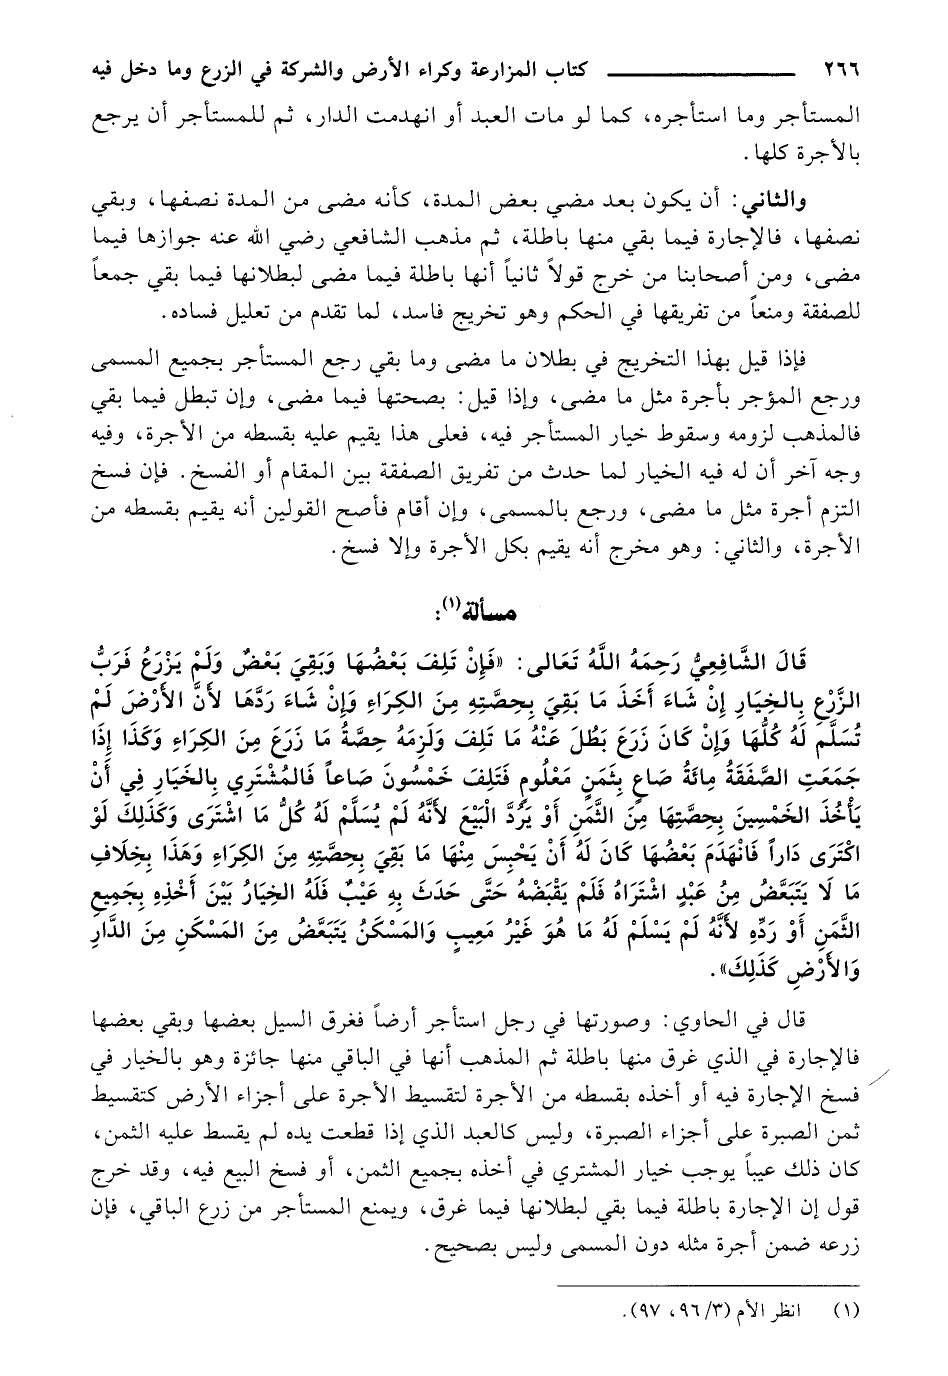 ٢٦٦ ــــــــــــــــ كتاب المزارعة وكراء الأرض والشركة في الزرع وما دخل فيه
المستأجر وما استأجره، كما لو مات العبد أو انهدمت الدار، ثم للمستأجر أن يرجع
بالأجرة كلها.
والثاني: أن يكون بعد مضي بعض المدة، كأنه مضى من المدة نصفها، وبقي
نصفها، فالإجارة فيما بقي منها باطلة، ثم مذهب الشافعي رضي الله عنه جوازها فيما
مضى، ومن أصحابنا من خرج قولاً ثانياً أنها باطلة فيما مضى لبطلانها فيما بقي جمعاً
للصفقة ومنعاً من تفريقها في الحكم وهو تخريج فاسد، لما تقدم من تعليل فساده.
فإذا قيل بهذا التخريج في بطلان ما مضى وما بقي رجع المستأجر بجميع المسمى
ورجع المؤجر بأجرة مثل ما مضى، وإذا قيل: بصحتها فيما مضى، وإن تبطل فيما بقي
فالمذهب لزومه وسقوط خيار المستأجر فيه، فعلى هذا يقيم عليه بقسطه من الأجرة، وفيه
وجه آخر أن له فيه الخيار لما حدث من تفريق الصفقة بين المقام أو الفسخ. فإن فسخ
التزم أجرة مثل ما مضى، ورجع بالمسمى، وإن أقام فأصح القولين أنه يقيم بقسطه من
الأجرة، والثاني: وهو مخرج أنه يقيم بكل الأجرة وإلا فسخ.
مسألة(١):
قَالَ الشَّافِعِيُّ رَحِمَهُ اللَّهُ تَعَالى: «فَإِنْ تَلِفَ بَعْضُهَا وَبَقِيَ بَعْضٌ وَلَمْ يَزْرَعْ فَرَبُّ
الزَّرْعِ بِالخِيَارِ إِنْ شَاءَ أَخَذَ مَا بَقِيَ بِحِصَّتِهِ مِنَ الكِرَاءِ وَإِنْ شَاءَ رَدَّهَا لأَنَّ الأَرْضَ لَمْ
تُسَلَّمْ لَهُ كُلُّهَا وَإِنْ كَانَ زَرَعَ بَطُلَ عَنْهُ مَا تَلِفَ وَلَزِمَهُ حِصَّةُ مَا زَرَعَ مِنَ الكِرَاءِ وَكَذَا إِذَا
جَمَعَتِ الصَّفَقَةُ مِائَةُ صَاعٍ بِثَمَنٍ مَعْلُومٍ فَتَلِفَ خَمْسُونَ صَاعاً فَالمُشْتَرِي بِالخَيَارِ فِي أَنْ
يَأْخُذَ الخَمْسِينَ بِحِصَّتِهَا مِنَ الثَّمَنِ أَوْ يَرُدَّ الْبَيْعَ لأَنَّهُ لَمْ يُسَلَّمْ لَهُ كُلُّ مَا اشْتَرَى وَكَذَلِكَ لَوْ
اكْتَرَى دَاراً فَانْهَدَمَ بَعْضُهَا كَانَ لَهُ أَنْ يَحْبِسَ مِنْهَا مَا بَقِيَ بِحِصَّتِهِ مِنَ الكِرَاءِ وَهَذَا بِخِلَافِ
مَا لَا يَتَبَعَّضُ مِنْ عَبْدٍ اشْتَرَاهُ فَلَمْ يَقْبَضْهُ حَتَّى حَدَثَ بِهِ عَيْبٌ فَلَهُ الخِيَارُ بَيْنَ أَخْذِهِ بِجَمِيعِ
الثَّمَنِ أَوْ رَدِّهِ لأَنَّهُ لَمْ يَسْلَمْ لَهُ مَا هُوَ غَيْرُ مَعِيبٍ وَالمَسْكَنُ يَتَبَعَّضُ مِنَ المَسْكَنِ مِنَ الدَّارِ
وَالأَرْضِ كَذَلِكَ».
قال في الحاوي: وصورتها في رجل استأجر أرضاً فغرق السيل بعضها وبقي بعضها
فالإجارة في الذي غرق منها باطلة ثم المذهب أنها في الباقي منها جائزة وهو بالخيار في
فسخ الإجارة فيه أو أخذه بقسطه من الأجرة لتقسيط الأجرة على أجزاء الأرض كتقسيط
ثمن الصبرة على أجزاء الصبرة، وليس كالعبد الذي إذا قطعت يده لم يقسط عليه الثمن،
كان ذلك عيباً يوجب خيار المشتري في أخذه بجميع الثمن، أو فسخ البيع فيه، وقد خرج
قول إن الإجارة باطلة فيما بقي لبطلانها فيما غرق، ويمنع المستأجر من زرع الباقي، فإن
زرعه ضمن أجرة مثله دون المسمى وليس بصحيح.
(١) انظر الأم (٣/ ٩٦، ٩٧).